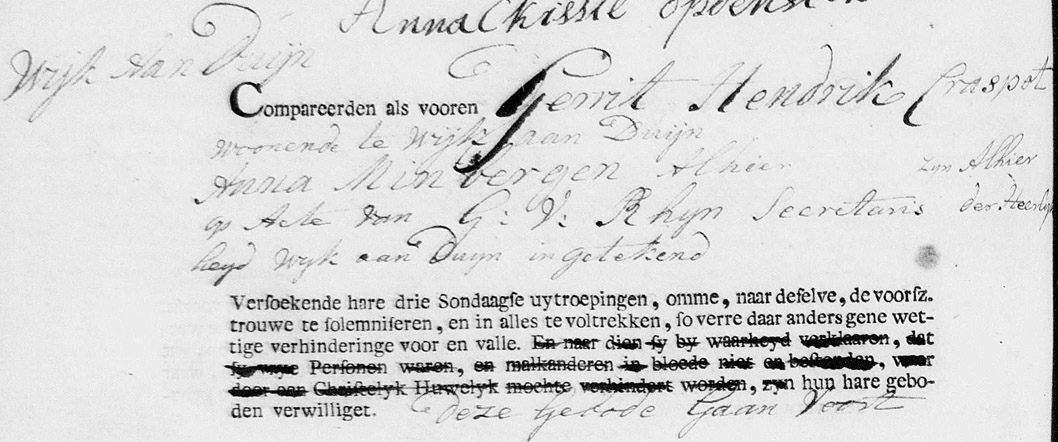 Anna Chissie
Wijk Aan Duijn
Compareerden als vooren Gerrit Hendrik Craspot
woonende te Wijk aan Duijn
Anna Minbergen Alhier zyn Alhier
op Acte van G: V: Rhyn Secretaris der Heerly
heyd Wyk aan Duyn in getekend
Verſoekende hare drie Sondaagſe uytroepingen, omme, naar deſelve, de voorſz.
trouwe te ſolemniſeren, en in alles te voltrekken, ſo verre daar anders gene wet-
tige verhinderinge voor en valle. En naar dien ſy by waarheyd verklaaren, dat
ſy vrye Perſonen waren, en malkanderen in bloede niet en beſtonden, waar
door een Chriſtelyk Huwelyk mochte verhindert worden, zyn hun hare gebo-
den verwilliget. deze Gebode Gaan Voort